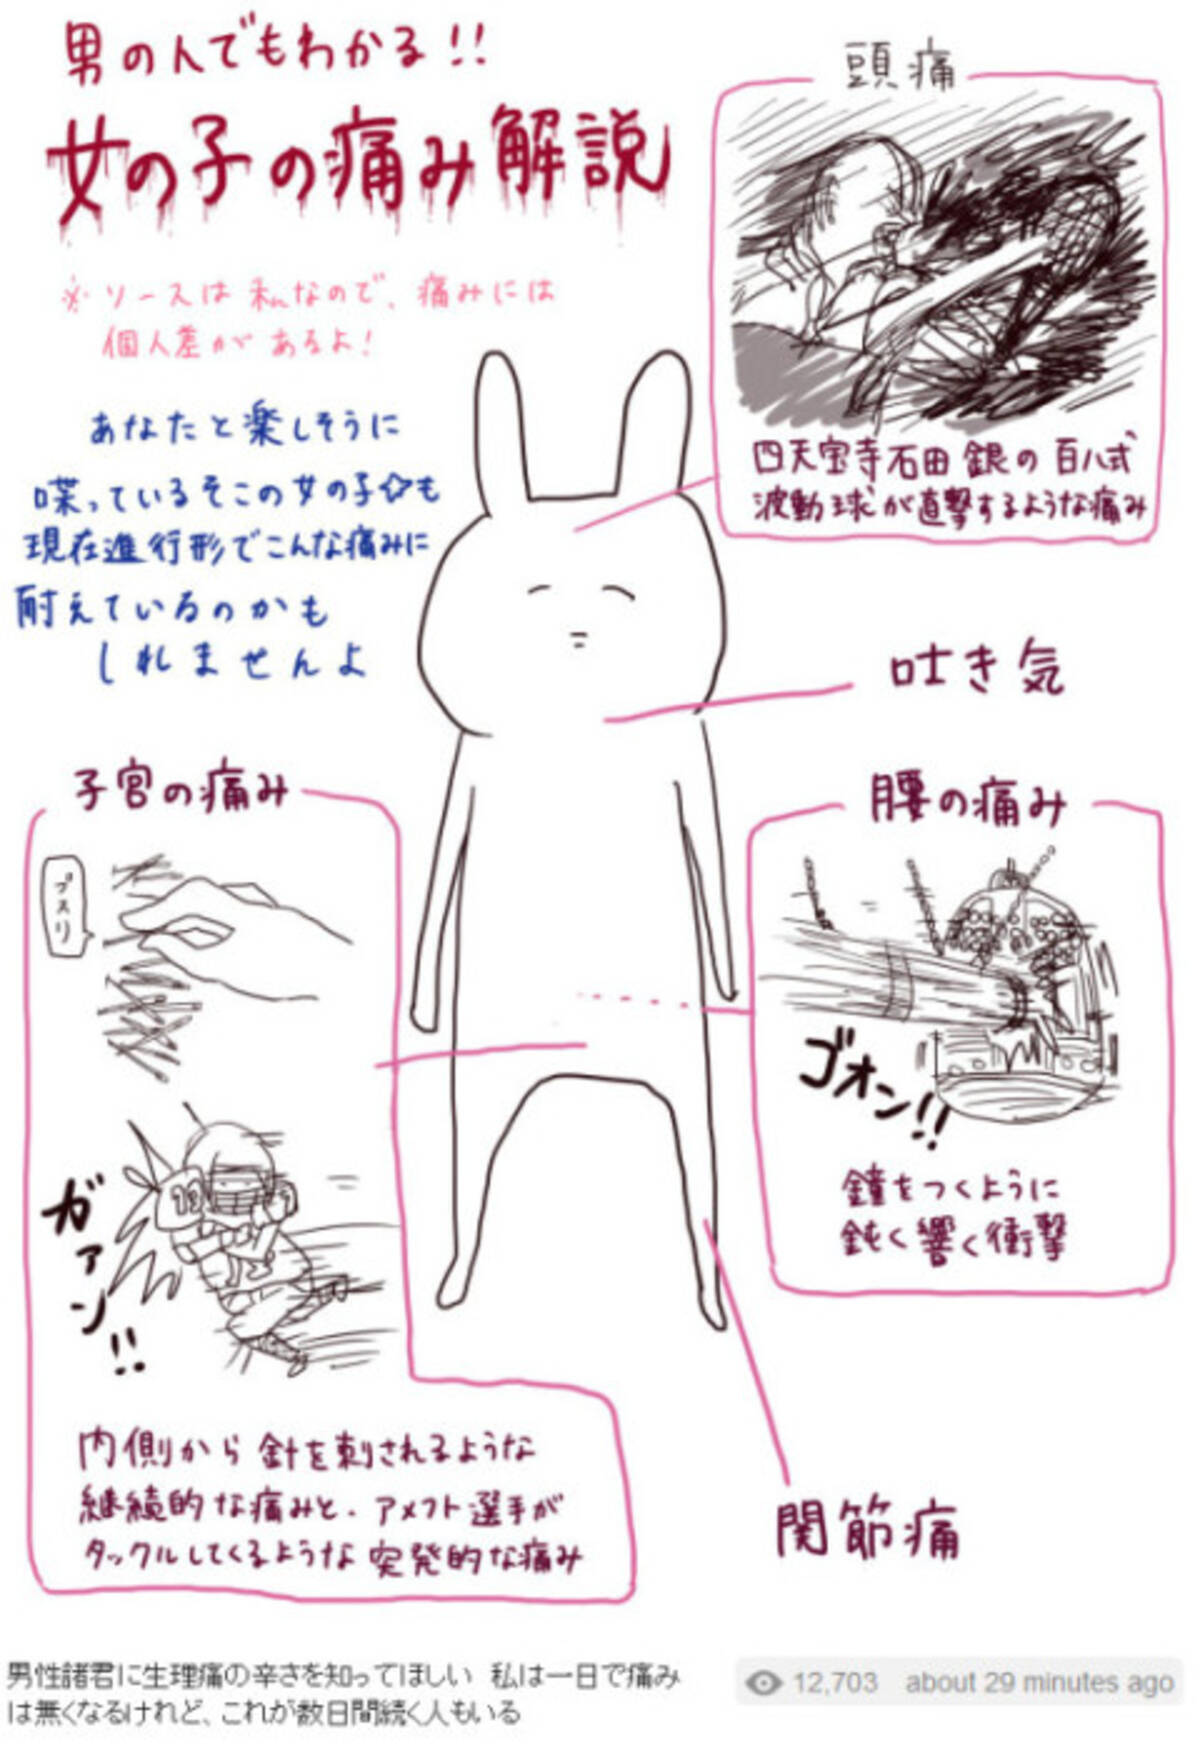 男の人でもわかる!!
女の子の痛み解説
※ソースは私なので、痛みには
個人差があるよ!
あなたと楽しそうに
喋っているそこの女の子☆も
現在進行形でこんな痛みに
耐えているのかも
しれませんよ
頭痛
四天宝寺石田銀の百八式
波動球が直撃するような痛み
吐き気
子宮の痛み
ブスリ
19
ガァン!!
内側から針を刺されるような
継続的な痛みと、アメフト選手が
タックルしてくるような突発的な痛み
腰の痛み
ゴオン!!
鐘をつくように
鈍く響く衝撃
関節痛
男性諸君に生理痛の辛さを知ってほしい 私は一日で痛み
は無くなるけれど、これが数日間続く人もいる
12,703 about 29 minutes ago